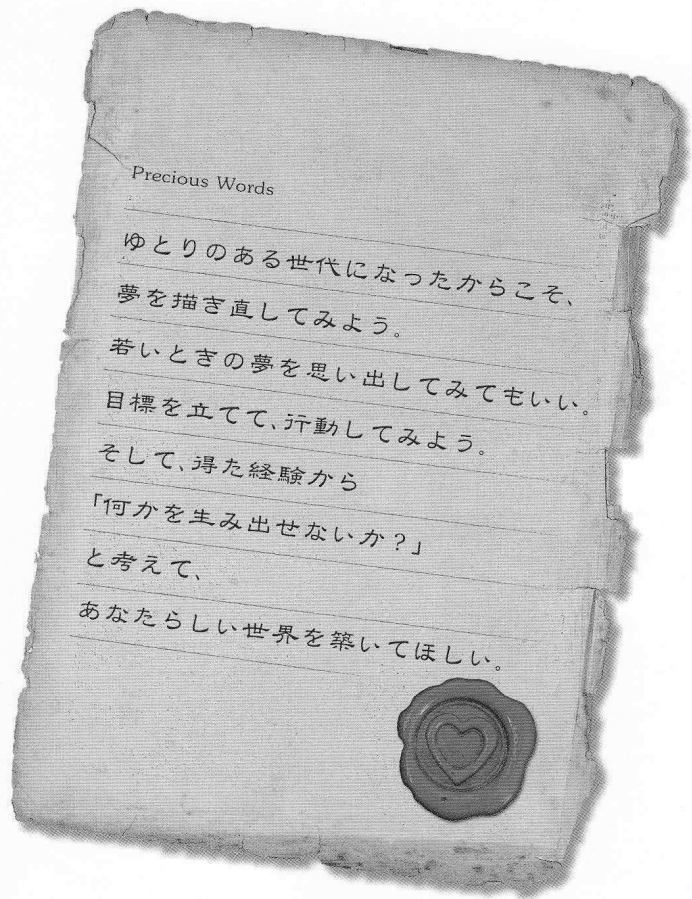 Precious Words
ゆとりのある世代になったからこそ、
夢を描き直してみよう。
若いときの夢を思い出してみてもいい。
目標を立てて、行動してみよう。
そして、得た経験から
「何かを生み出せないか？」
と考えて、
あなたらしい世界を築いてほしい。